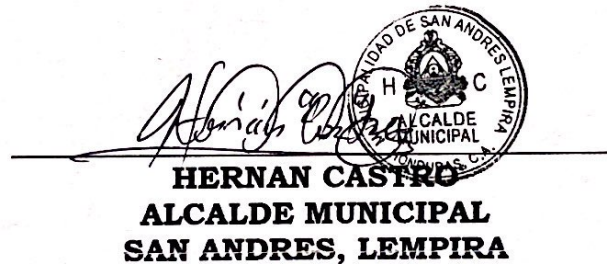 MUNICIPALIDAD DE SAN ANDRES LEMPIRA
H C
ALCALDE
MUNICIPAL
HONDURAS, C.A.
HERNAN CASTRO
ALCALDE MUNICIPAL
SAN ANDRES, LEMPIRA